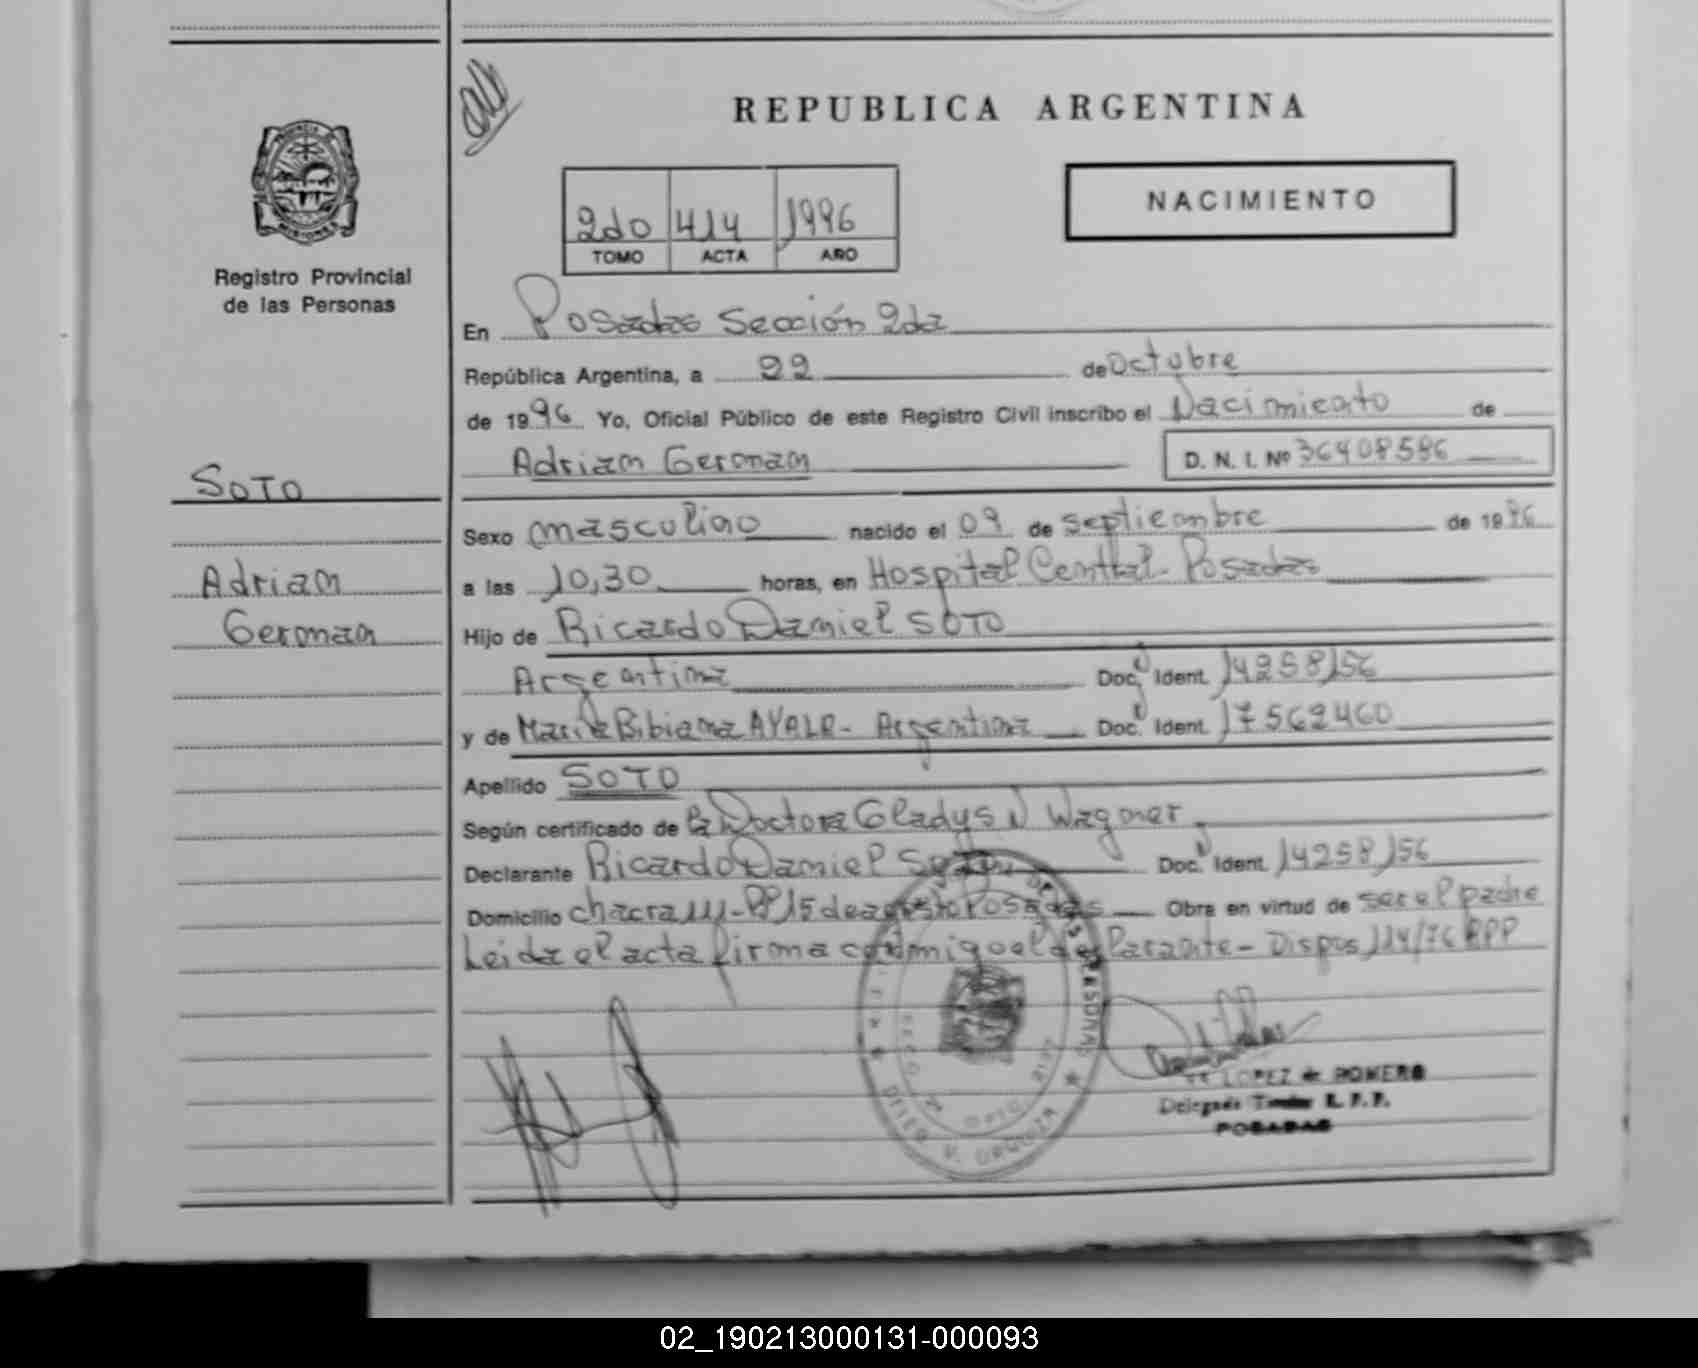 REPUBLICA ARGENTINA
NACIMIENTO
2do 414 1996
TOMO ACTA AÑO
MISIONES
Registro Provincial
de las Personas
En Posadas Sección 2da
República Argentina, a 22 de Octubre
de 1996 Yo, Oficial Público de este Registro Civil inscribo el Nacimiento de
Adrian German D. N. I. Nº 36408586
SOTO
Sexo masculino nacido el 09 de septiembre de 1996
Adrian
German
a las 10,30 horas, en Hospital Central - Posadas
Hijo de Ricardo Daniel SOTO
Argentina Doc. Ident. 14258156
y de María Bibiana AYALA - Argentina Doc. Ident. 17562460
Apellido SOTO
Según certificado de la Doctora Gladys N Wagner
Declarante Ricardo Daniel Soto Doc. Ident. 14258156
Domicilio chacra 111 - Bº 15 de agosto Posadas Obra en virtud de ser el padre
Leida el acta firma conmigo el declarante - Dispos 114/76 RPP
DE LAS PERSONAS
V. URQUIZA
LOPEZ de ROMERO
Delegada Titular R. P. P.
POSADAS
02_190213000131-000093